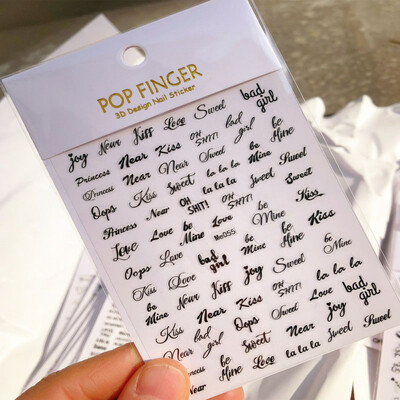 POP FINGER
3D Design Nail Sticker
joy Near Kiss Love Sweet bad girl
Princess Near Kiss OH SHIT! bad girl be Mine
Princess Near Near Sweet la la la be Mine Sweet
Oops Kiss Sweet la la la Sweet Sweet
Princess Near OH SHIT! Love be Mine Kiss
Love Love be Mine Me055 be Mine be Mine Kiss
Oops Love bad girl be Mine
Kiss Love Sweet OH SHIT! la la la
be Mine Near Kiss joy Love bad girl
Near Kiss Oops Near joy
Kiss bad girl Sweet Sweet Sweet
Near be Mine Love la la la
Near